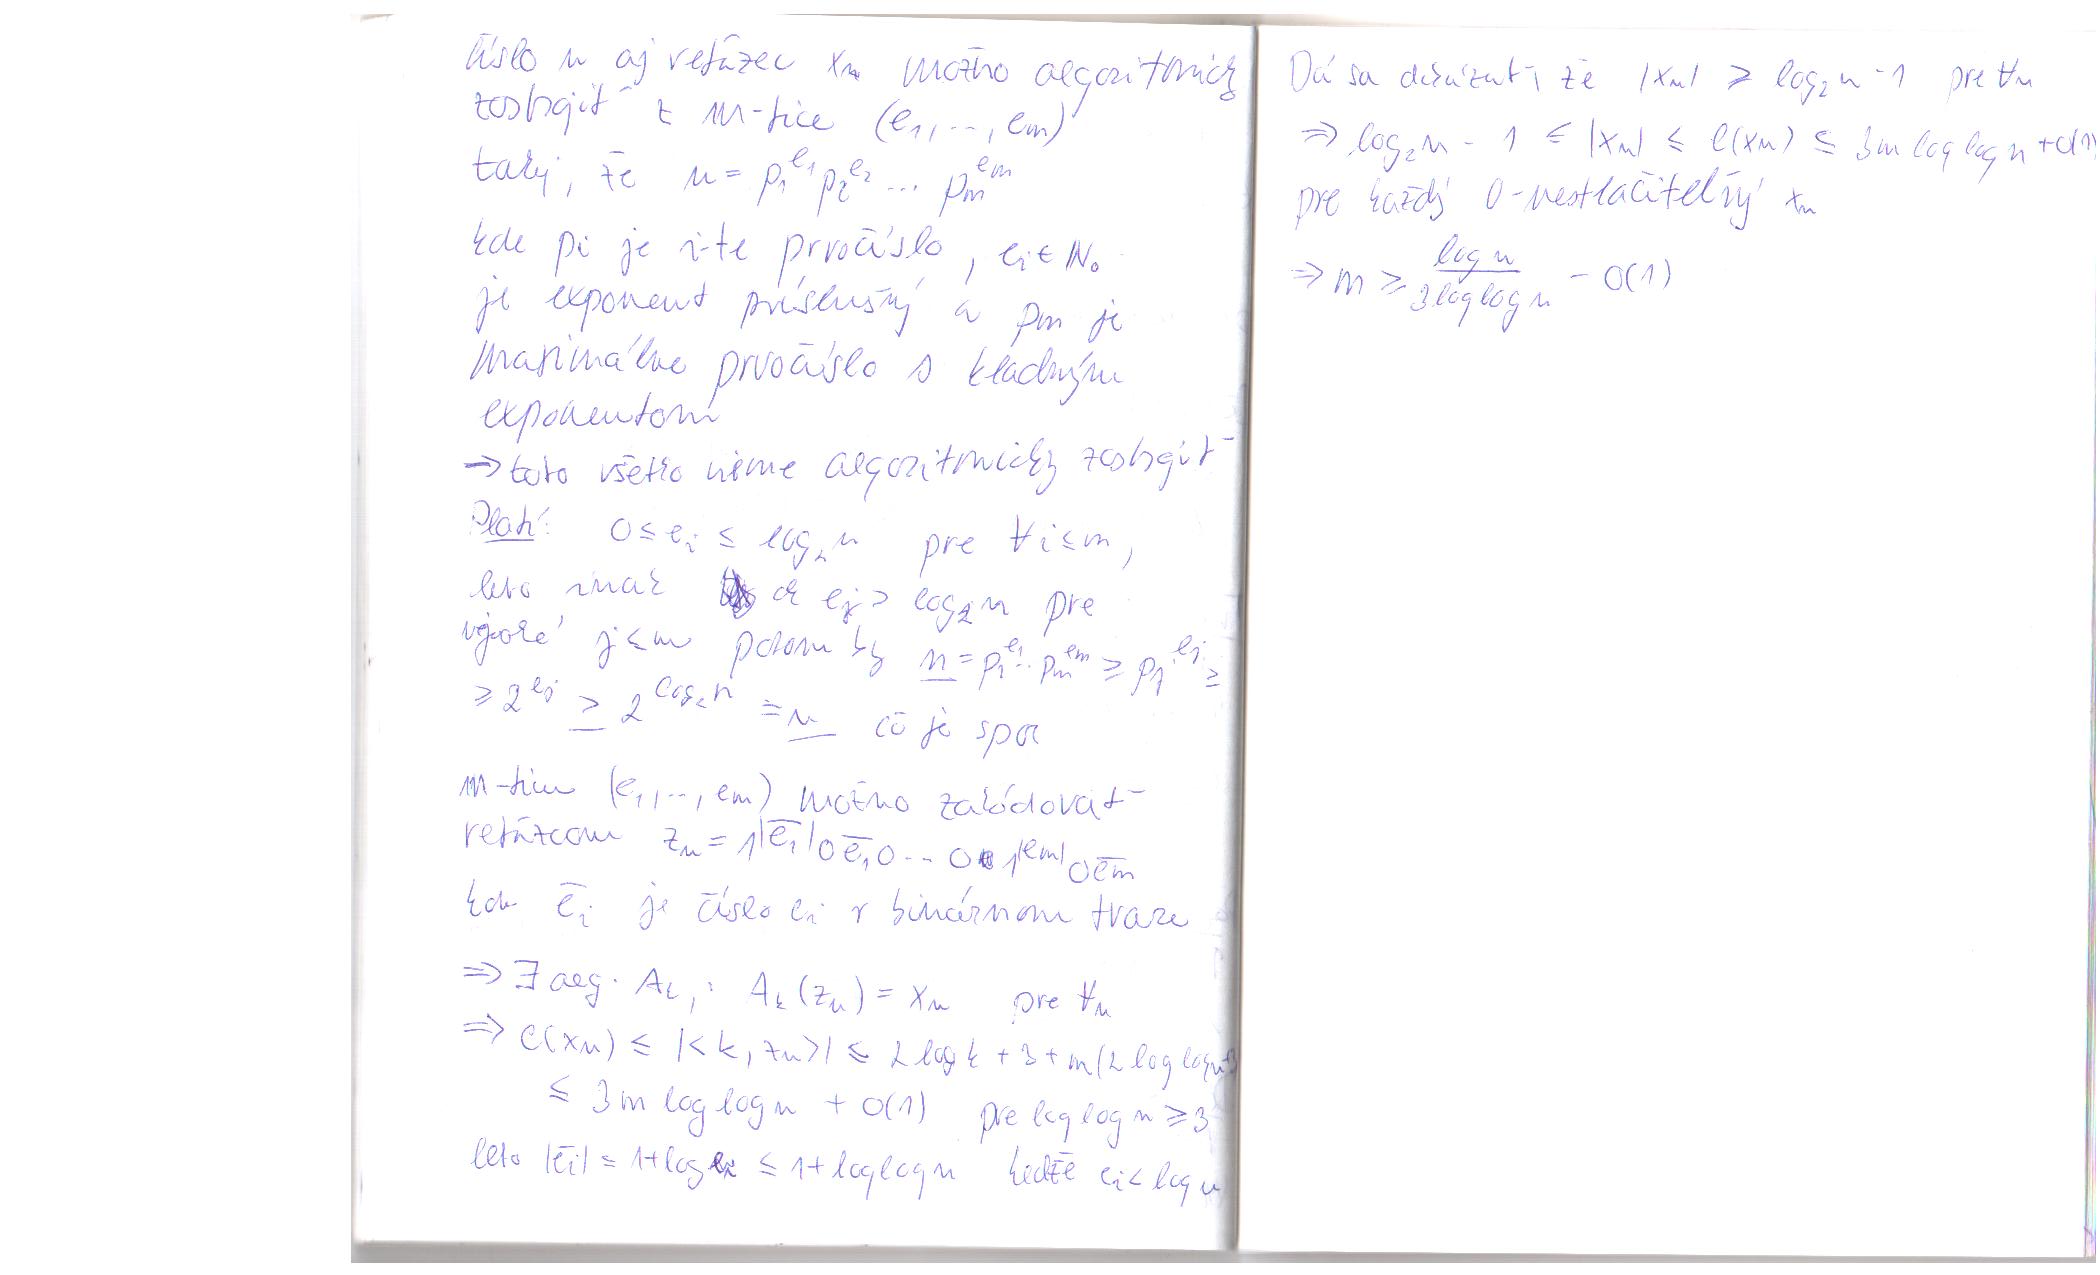 číslo n aj reťazec xₙ možno algoritmicky
zostrojiť z m-tice (e₁, .., eₘ)
takej, že n = p₁^e₁ p₂^e₂ ... pₘ^eₘ
kde pi je i-te prvočíslo, ei ∈ ℕ₀
je exponent príslušný a pm je
maximálne prvočíslo s kladným
exponentom
→ toto všetko vieme algoritmicky zostrojiť
Platí: 0 ≤ eᵢ ≤ log₂ n pre ∀ i ≤ m,
lebo inak ak eⱼ > log₂ n pre
nejaké j ≤ m potom by n = p₁^e₁ .. pₘ^eₘ ≥ p₁^eⱼ ≥
≥ 2^eⱼ ≥ 2^log₂n = n čo je spor
m-ticu (e₁, .., eₘ) možno zakódovať
reťazcom zₙ = 1^|e̅₁| 0 e̅₁ 0 .. 0 1^|em| 0 e̅m
kde e̅ᵢ je číslo ei v binárnom tvare
⇒ ∃ alg. Aₖ, : Aₖ(zₙ) = xₙ pre ∀n
⇒ C(xₙ) ≤ |<k, zₙ>| ≤ 2 log k + 3 + m(2 log log n + 3
≤ 3m log log n + O(1) pre log log n ≥ 3
lebo |e̅i| = 1 + log ei ≤ 1 + log log n keďže ei < log n
Dá sa dokázať, že |xₙ| ≥ log₂ n - 1 pre ∀n
⇒ log₂ n - 1 ≤ |xₙ| ≤ C(xₙ) ≤ 3m log log n + O(1)
pre každý 0-nestlačiteľný xₙ
⇒ m ≥ log n / 3 log log n - O(1)